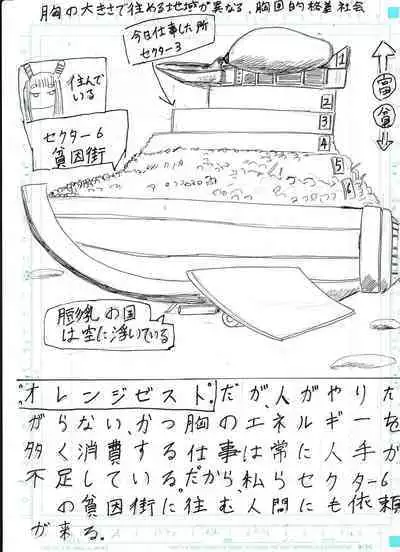 胸の大きさで住める地域が異なる、胸囲的格差社会
今日仕事した所
セクター3
住んで
いる
セクター6
貧困街
1
2
3
4
5
6
富
貧
の国
は空に浮いている
"オレンジゼスト"だが、人がやりた
がらない、かつ胸のエネルギーを
多く消費する仕事は常に人手が
不足している。だから、私らセクター6
の貧困街に住む人間にも依頼
が来る。